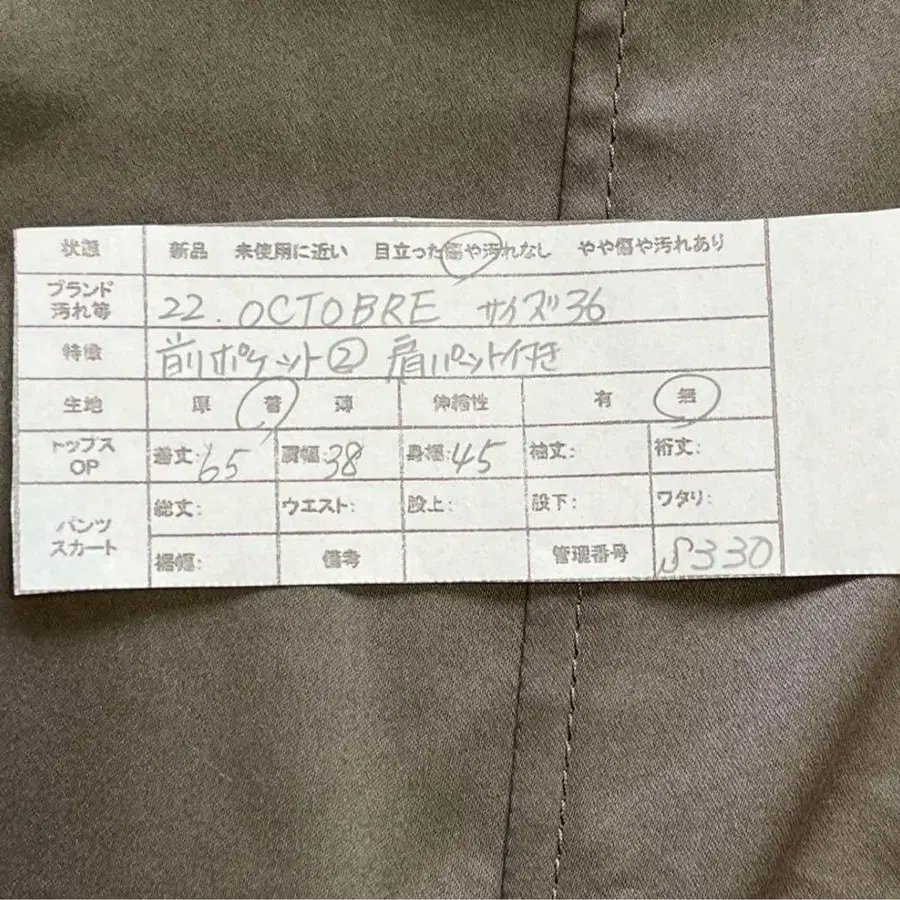 状態 新品 未使用に近い 目立った傷や汚れなし やや傷や汚れあり
ブランド
汚れ等 22. OCTOBRE サイズ36
特徴 前ポケット② 肩パット付き
生地 厚 普 薄 伸縮性 有 無
トップス
OP 着丈:65 肩幅:38 身幅:45 袖丈: 裄丈:
パンツ
スカート 総丈: ウエスト: 股上: 股下: ワタリ:
裾幅: 備考 管理番号 S330